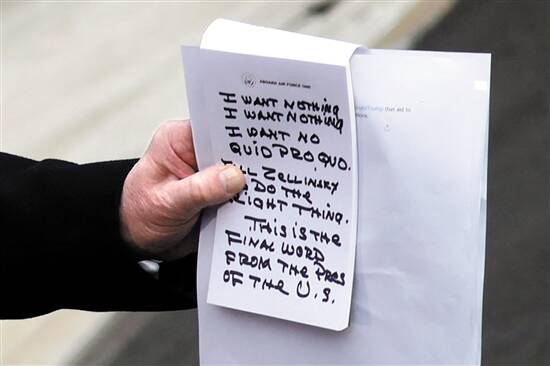 ABOARD AIR FORCE ONE
I WANT NOTHING
I WANT NOTHING
I WANT NO
QUID PRO QUO.
ZELLINSKY
DO THE
RIGHT THING.
THIS IS THE
FINAL WORD
FROM THE PRES
OF THE U.S.
that aid to